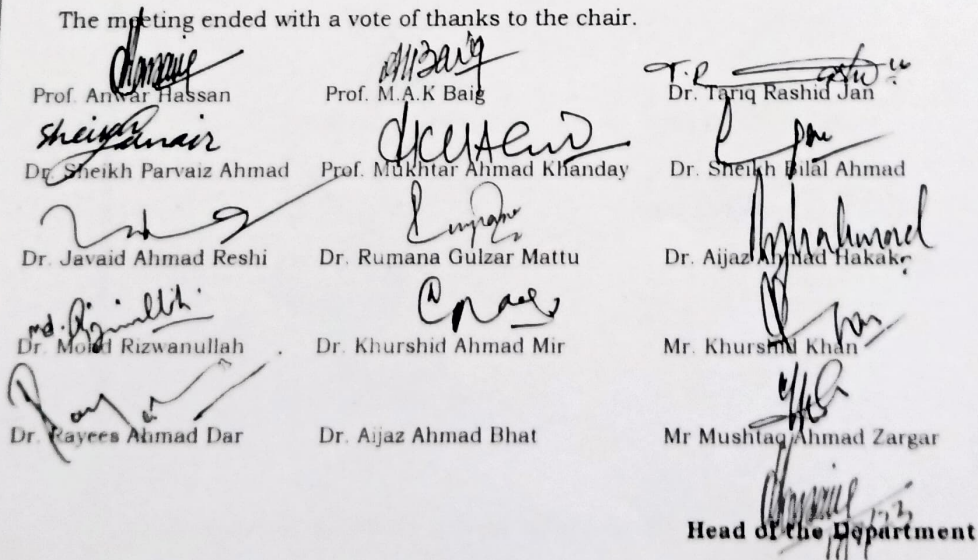 The meeting ended with a vote of thanks to the chair.
Prof. Anwar Hassan Prof. M.A.K Baig Dr. Tariq Rashid Jan
Dr. Sheikh Parvaiz Ahmad Prof. Mukhtar Ahmad Khanday Dr. Sheikh Bilal Ahmad
Dr. Javaid Ahmad Reshi Dr. Rumana Gulzar Mattu Dr. Aijaz Ahmad Hakak
md. Rizwanullah
Dr. Mohd Rizwanullah Dr. Khurshid Ahmad Mir Mr. Khurshid Khan
Dr. Rayees Ahmad Dar Dr. Aijaz Ahmad Bhat Mr Mushtaq Ahmad Zargar
Head of the Department